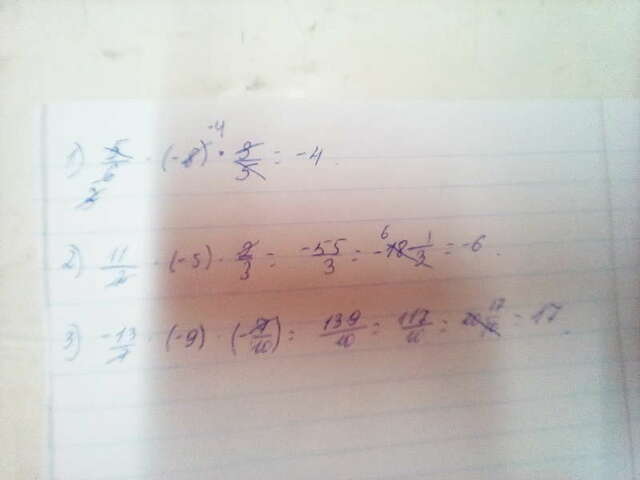 1) 5/6 · (-8)^-4 · 3/5 = -4.
2) 11/2 · (-5) · 2/3 = -55/3 = -18 1/3 = -6.
3) -13/7 · (-9) · (-7/10) = 139/10 = 117/10 = = 17.